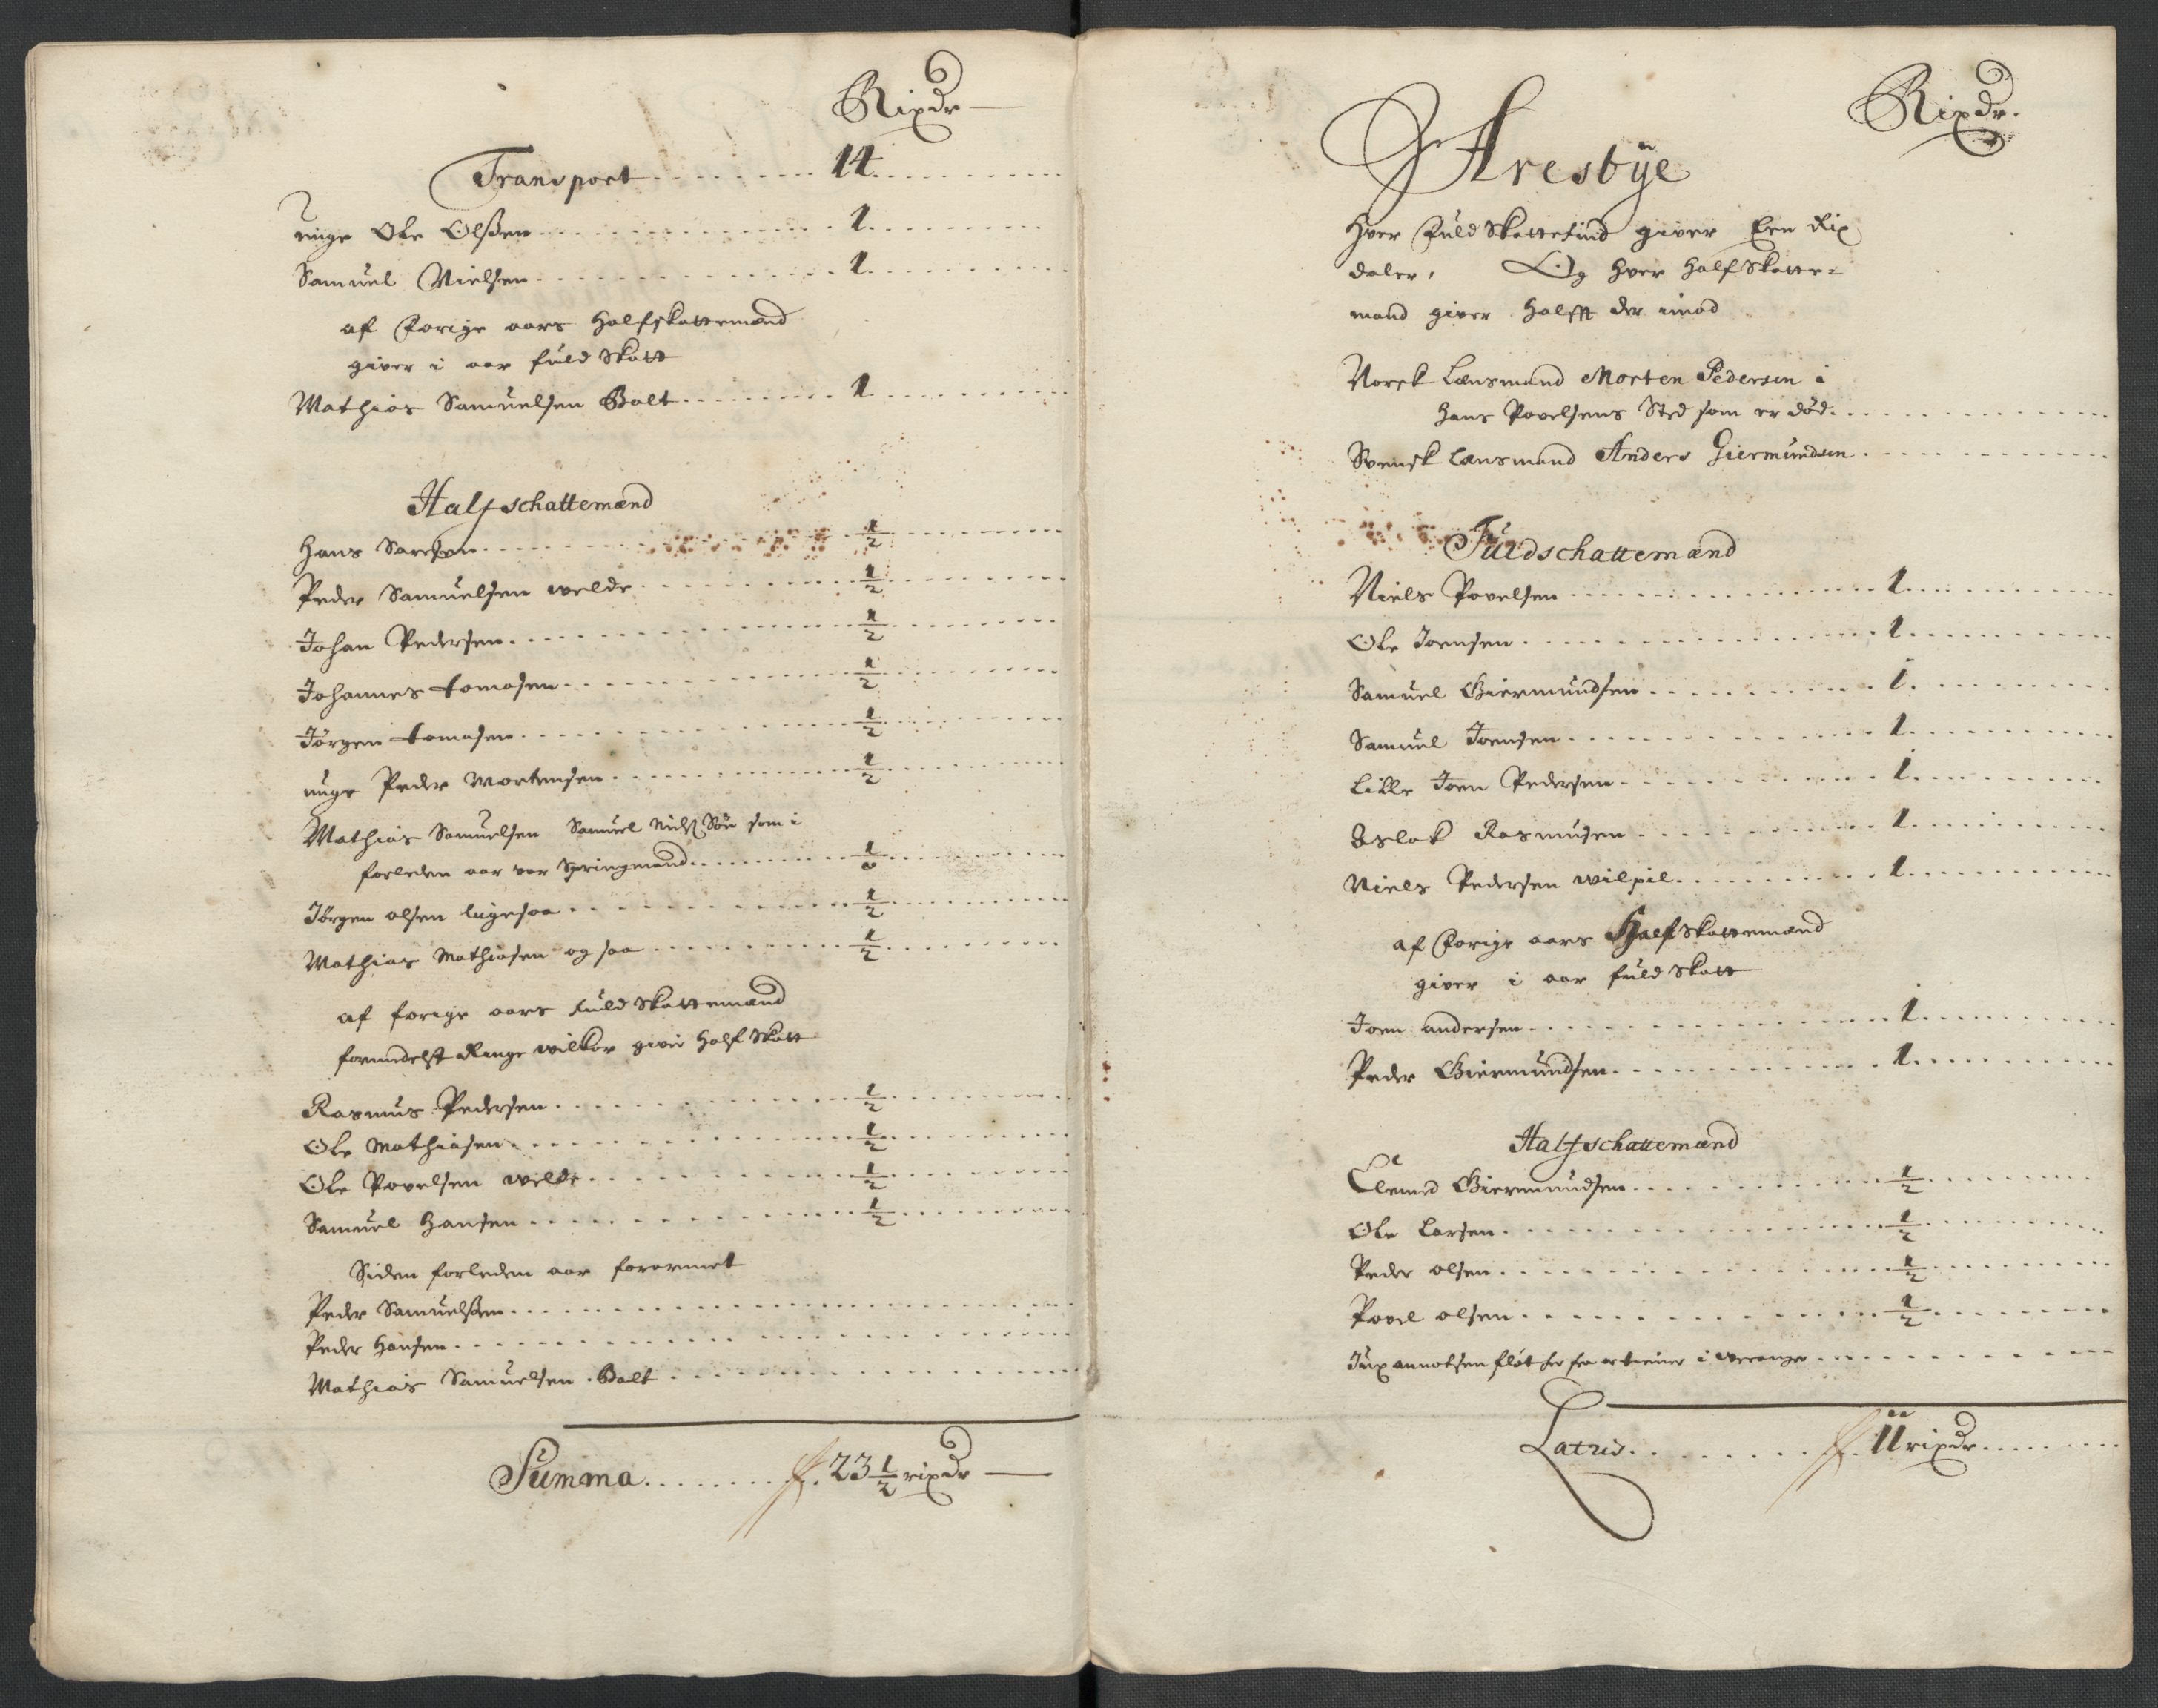 Rixdr
Transport 14
unge Ole Olssen 1
Samuel Nielsen 1
af forige aars halfskattemænd
giver i aar fuld Skatt
Mathias Samuelsen Balt 1
Halfschattemænd
Hans Saresen 1/2
Peder Samuelsen welde 1/2
Johan Pedersen 1/2
Johannes tomasen 1/2
Jörgen tomasen 1/2
unge Peder Mortensen 1/2
Mathias Samuelsen Samuel Niels Sön som i
forleden aar var Springmand 1/2
Jörgen olsen ligesaa 1/2
Mathias Mathiasen og saa 1/2
af forige aars fuld Skattemænd
formedelst Ringe wilkor giver half Skatt
Rasmus Pedersen 1/2
Ole Mathiasen 1/2
Ole Povelsen welde 1/2
Samuel Hansen 1/2
Siden forleden aar forarmet
Peder Samuelssen
Peder Hansen
Mathias Samuelsen Balt
Summa 23 1/2 rixdr
Rixdr.
Aresbÿe
Hver fuld Skattefind giver Een Rix
daler, Og hver half Skatte=
mand giver halfft der imod
Norsk Lænsmand Morten Pedersen i
Hans Povelsens Sted som er död
Svensk Lænsmand Anders Giermundsen
Fuldschattemænd
Niels Povelsen 1
Ole Joensen 1
Samuel Giermundsen 1
Samuel Joensen 1
Lille Joen Pedersen 1
Aslak Rasmusen 1
Niels Pedersen wilpil 1
af forige aars Half Skattemænd
giver i aar fuld Skatt
Joen andersen 1
Peder Giermundsen 1
Halfschattemænd
Clemed Giermundsen 1/2
Ole Larsen 1/2
Peder olsen 1/2
Povel olsen 1/2
flöt her fra og tiener i weranger
Latris 11 rixdr